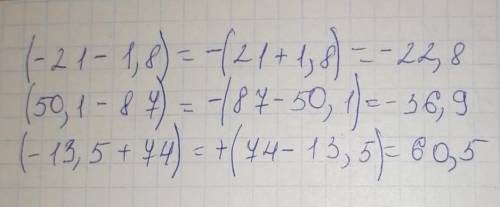 (-21-1,8) = -(21+1,8) = -22,8
(50,1-87) = -(87-50,1) = -36,9
(-13,5+74) = +(74-13,5) = 60,5